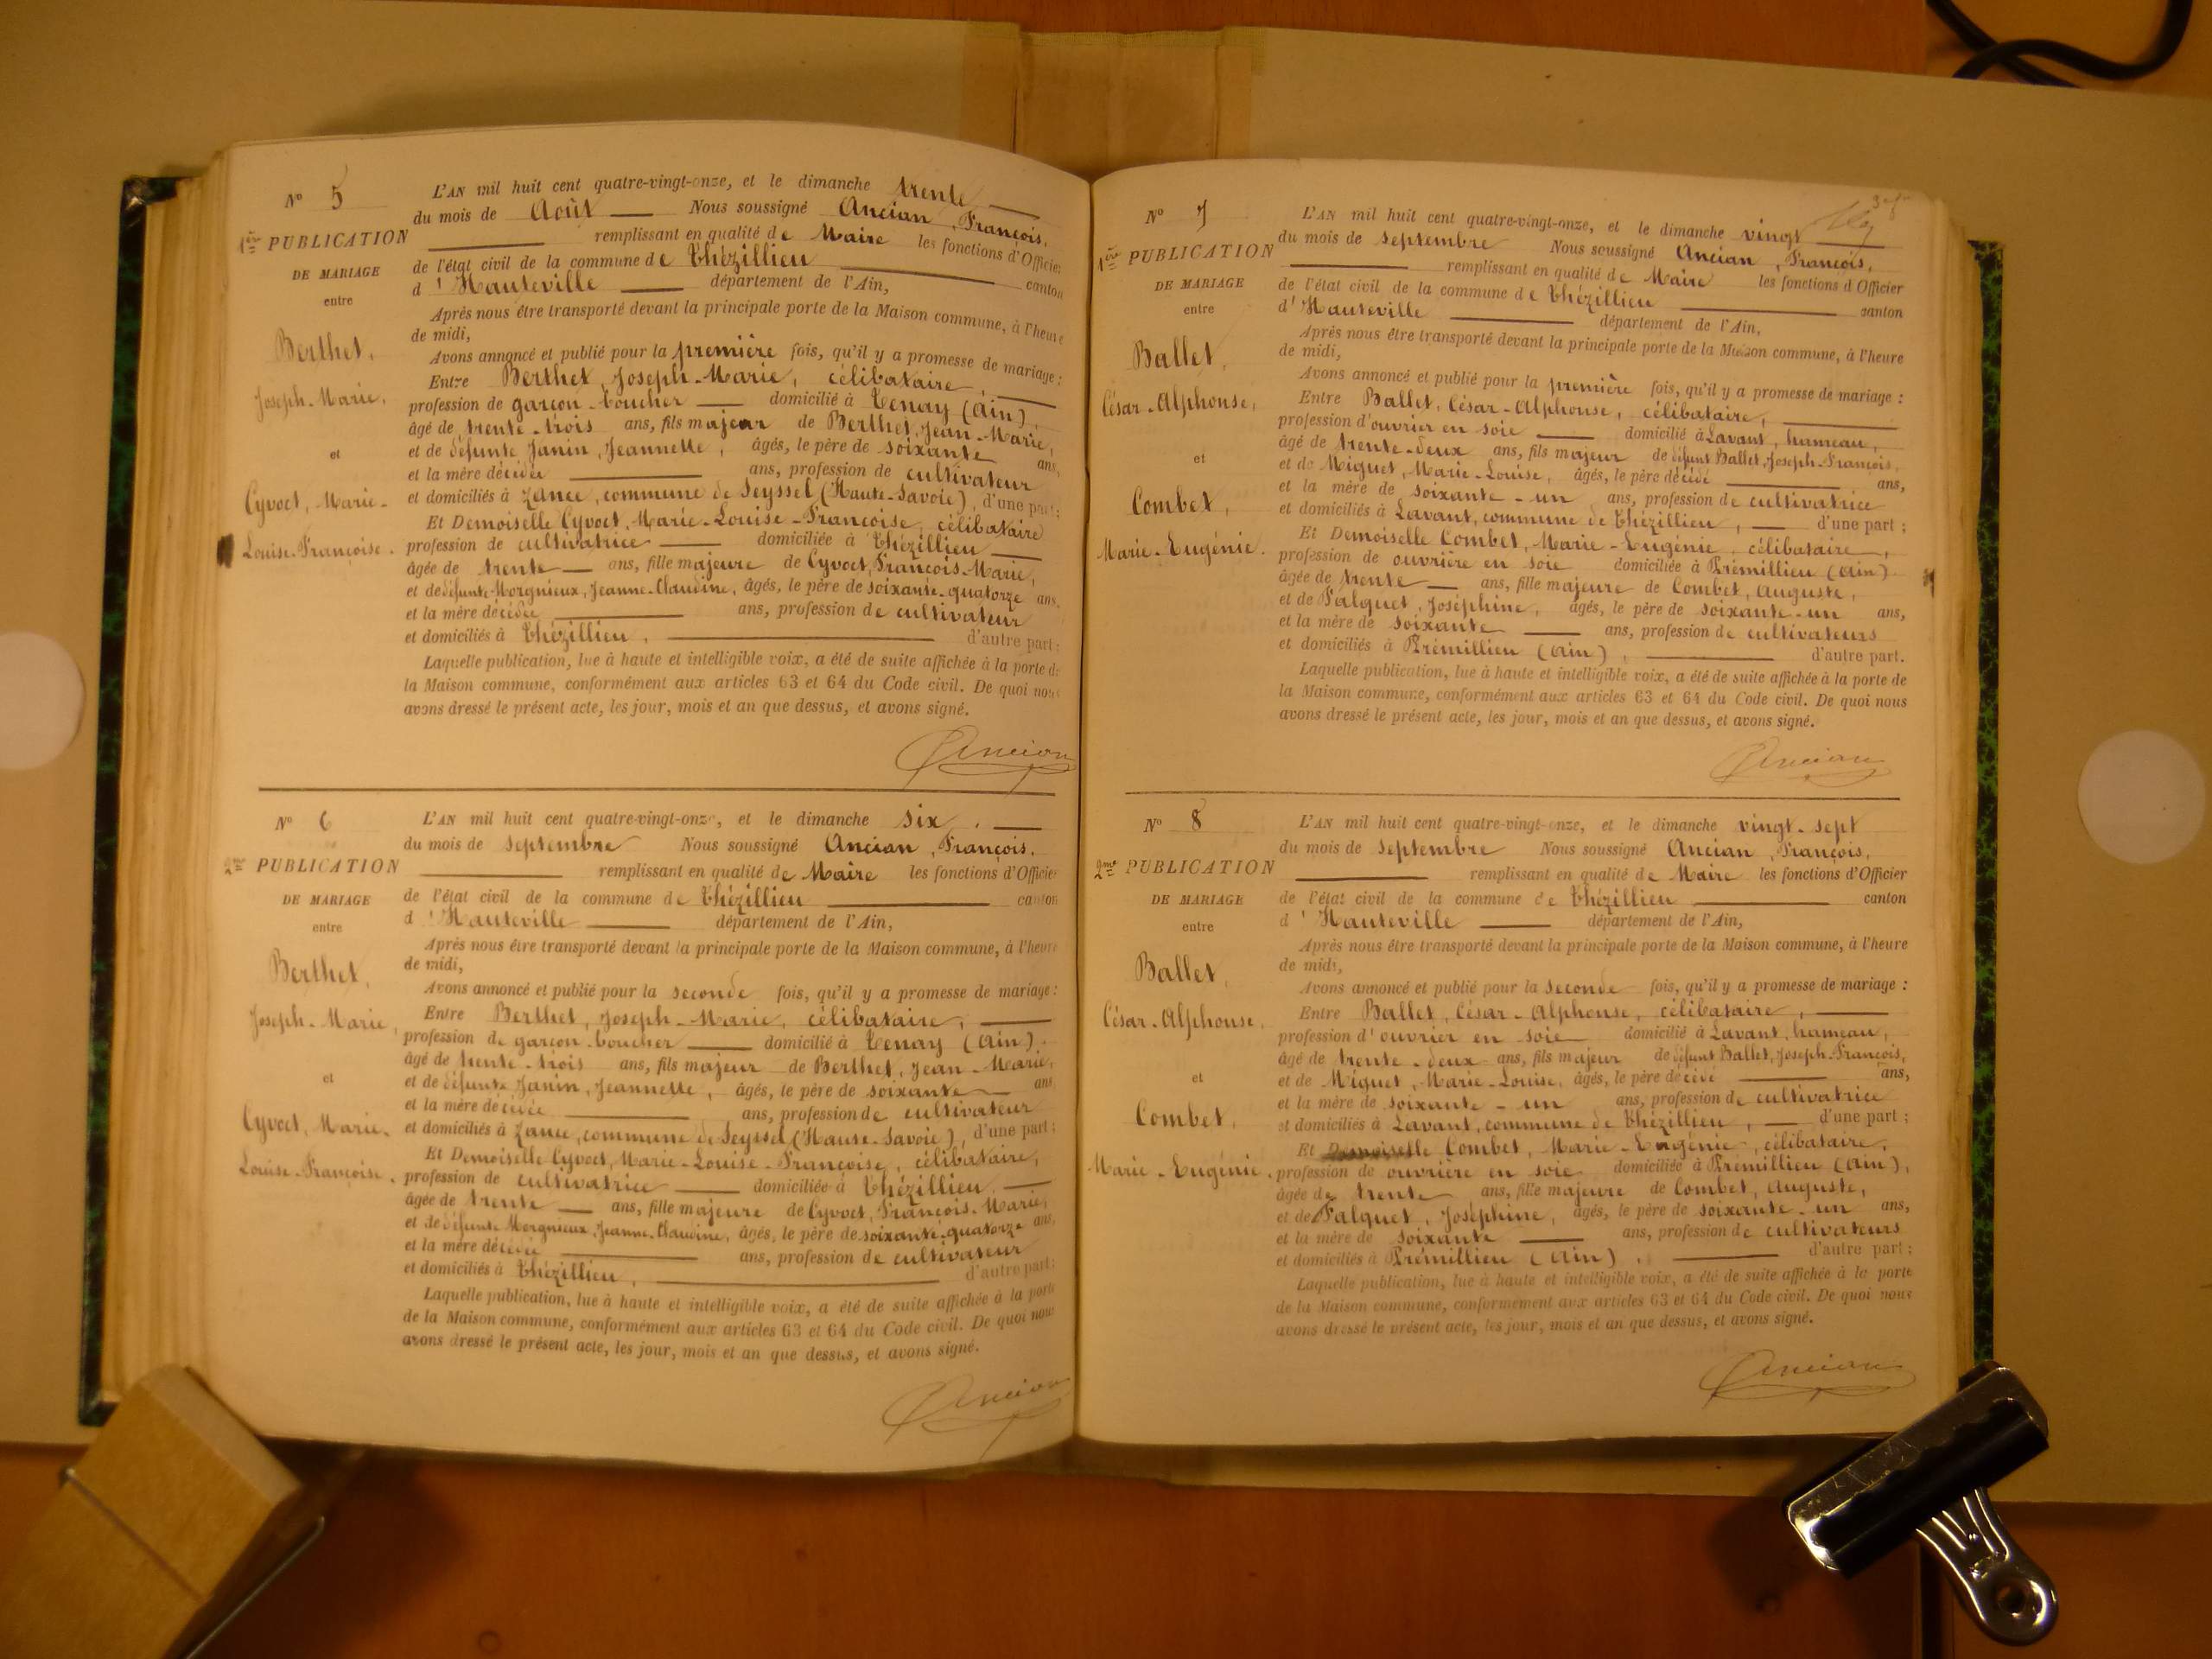 N° 5
1ère PUBLICATION
DE MARIAGE
entre
Berthet,
Joseph-Marie,
et
Cyvoct, Marie-
Louise-Françoise.
L'AN mil huit cent quatre-vingt-onze, et le dimanche trente
du mois de Août Nous soussigné Ancian, François,
remplissant en qualité de Maire les fonctions d'Officier
de l'état civil de la commune de Thézillieu canton
d'Hauteville département de l'Ain,
Après nous être transporté devant la principale porte de la Maison commune, à l'heure
de midi,
Avons annoncé et publié pour la première fois, qu'il y a promesse de mariage :
Entre Berthet, Joseph-Marie, célibataire,
profession de garçon-boucher domicilié à Tenay (Ain),
âgé de trente-trois ans, fils majeur de Berthet, Jean-Marie,
et de défunte Janin, Jeannette, âgés, le père de soixante ans,
et la mère décédée ans, profession de cultivateur
et domiciliés à Zance, commune de Seyssel (Haute-Savoie), d'une part :
Et Demoiselle Cyvoct, Marie-Louise-Françoise, célibataire
profession de cultivatrice domiciliée à Thézillieu
âgée de trente ans, fille majeure de Cyvoct, François-Marie,
et de défunte Morgnieux, Jeanne-Claudine, âgés, le père de soixante-quatorze ans,
et la mère décédée ans, profession de cultivateur
et domiciliés à Thézillieu, d'autre part :
Laquelle publication, lue à haute et intelligible voix, a été de suite affichée à la porte de
la Maison commune, conformément aux articles 63 et 64 du Code civil. De quoi nous
avons dressé le présent acte, les jour, mois et an que dessus, et avons signé.
Ancian
N° 6
2me PUBLICATION
DE MARIAGE
entre
Berthet,
Joseph-Marie,
et
Cyvoct, Marie-
Louise-Françoise.
L'AN mil huit cent quatre-vingt-onze, et le dimanche six
du mois de Septembre Nous soussigné Ancian, François,
remplissant en qualité de Maire les fonctions d'Officier
de l'état civil de la commune de Thézillieu canton
d'Hauteville département de l'Ain,
Après nous être transporté devant la principale porte de la Maison commune, à l'heure
de midi,
Avons annoncé et publié pour la seconde fois, qu'il y a promesse de mariage :
Entre Berthet, Joseph-Marie, célibataire,
profession de garçon-boucher domicilié à Tenay (Ain).
âgé de trente-trois ans, fils majeur de Berthet, Jean-Marie,
et de défunte Janin, Jeannette, âgés, le père de soixante ans
et la mère décédée ans, profession de cultivateur
et domiciliés à Zance, commune de Seyssel (Haute-Savoie), d'une part :
Et Demoiselle Cyvoct, Marie-Louise-Françoise, célibataire,
profession de cultivatrice domiciliée à Thézillieu,
âgée de trente ans, fille majeure de Cyvoct, François-Marie,
et de défunte Morgnieux, Jeanne-Claudine, âgés, le père de soixante-quatorze ans,
et la mère décédée ans, profession de cultivateur
et domiciliés à Thézillieu, d'autre part :
Laquelle publication, lue à haute et intelligible voix, a été de suite affichée à la porte
de la Maison commune, conformément aux articles 63 et 64 du Code civil. De quoi nous
avons dressé le présent acte, les jour, mois et an que dessus, et avons signé.
Ancian
N° 7
1ère PUBLICATION
DE MARIAGE
entre
Ballet,
César-Alphonse,
et
Combet,
Marie-Eugénie.
L'AN mil huit cent quatre-vingt-onze, et le dimanche vingt
du mois de Septembre Nous soussigné Ancian, François,
remplissant en qualité de Maire les fonctions d'Officier
de l'état civil de la commune de Thézillieu canton
d'Hauteville département de l'Ain,
Après nous être transporté devant la principale porte de la Maison commune, à l'heure
de midi,
Avons annoncé et publié pour la première fois, qu'il y a promesse de mariage :
Entre Ballet, César-Alphonse, célibataire,
profession d'ouvrier en soie domicilié à Lavant, hameau,
âgé de trente-deux ans, fils majeur de défunt Ballet, Joseph-François,
et de Miguet, Marie-Louise, âgés, le père décédé ans,
et la mère de soixante-un ans, profession de cultivatrice
et domiciliés à Lavant, commune de Thézillieu, d'une part ;
Et Demoiselle Combet, Marie-Eugénie, célibataire,
profession de ouvrière en soie domiciliée à Prémillieu (Ain)
âgée de trente ans, fille majeure de Combet, Auguste,
et de Falquet, Joséphine, âgés, le père de soixante-un ans,
et la mère de soixante ans, profession de cultivateurs
et domiciliés à Prémillieu (Ain), d'autre part.
Laquelle publication, lue à haute et intelligible voix, a été de suite affichée à la porte de
la Maison commune, conformément aux articles 63 et 64 du Code civil. De quoi nous
avons dressé le présent acte, les jour, mois et an que dessus, et avons signé.
Ancian
N° 8
2me PUBLICATION
DE MARIAGE
entre
Ballet,
César-Alphonse,
et
Combet,
Marie-Eugénie.
L'AN mil huit cent quatre-vingt-onze, et le dimanche vingt-sept
du mois de Septembre Nous soussigné Ancian, François,
remplissant en qualité de Maire les fonctions d'Officier
de l'état civil de la commune de Thézillieu canton
d'Hauteville département de l'Ain,
Après nous être transporté devant la principale porte de la Maison commune, à l'heure
de midi,
Avons annoncé et publié pour la seconde fois, qu'il y a promesse de mariage :
Entre Ballet, César-Alphonse, célibataire,
profession d'ouvrier en soie domicilié à Lavant, hameau,
âgé de trente-deux ans, fils majeur de défunt Ballet, Joseph-François,
et de Miguet, Marie-Louise, âgés, le père décédé ans,
et la mère de soixante-un ans, profession de cultivatrice
et domiciliés à Lavant, commune de Thézillieu, d'une part ;
Et Demoiselle Combet, Marie-Eugénie, célibataire,
profession de ouvrière en soie domiciliée à Prémillieu (Ain),
âgée de trente ans, fille majeure de Combet, Auguste,
et de Falquet, Joséphine, âgés, le père de soixante-un ans,
et la mère de soixante ans, profession de cultivateurs
et domiciliés à Prémillieu (Ain). d'autre part ;
Laquelle publication, lue à haute et intelligible voix, a été de suite affichée à la porte
de la Maison commune, conformément aux articles 63 et 64 du Code civil. De quoi nous
avons dressé le présent acte, les jour, mois et an que dessus, et avons signé.
Ancian